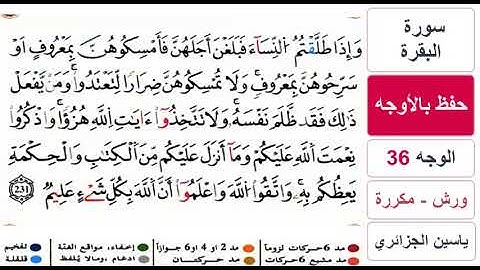 وَإِذَا طَلَّقْتُمُ النِّسَآءَ فَبَلَغْنَ أَجَلَهُنَّ فَأَمْسِكُوهُنَّ بِمَعْرُوفٍ أَوْ
سَرِّحُوهُنَّ بِمَعْرُوفٍ وَلَا تُمْسِكُوهُنَّ ضِرَارًا لِّتَعْتَدُوا وَمَنْ يَّفْعَلْ
ذَٰلِكَ فَقَد ظَّلَمَ نَفْسَهُ وَلَا تَتَّخِذُوا ءَايَٰتِ اللَّهِ هُزُؤًا وَاذْكُرُوا
نِعْمَتَ اللَّهِ عَلَيْكُمْ وَمَآ أَنزَلَ عَلَيْكُم مِّنَ الْكِتَٰبِ وَالْحِكْمَةِ
يَعِظُكُم بِهِ وَاتَّقُوا اللَّهَ وَاعْلَمُوا أَنَّ اللَّهَ بِكُلِّ شَيْءٍ عَلِيمٌ 231
سورة
البقرة
حفظ بالأوجه
الوجه 36
ورش - مكررة
ياسين الجزائري
مد 6 حركات لزوماً
مد 2 أو 4 أو 6 جوازاً
إخفاء، ومواقع الغنة
تفخيم
مد مشبع 6 حركات
مد حركتان
ادغام، ومالا يلفظ
قلقلة